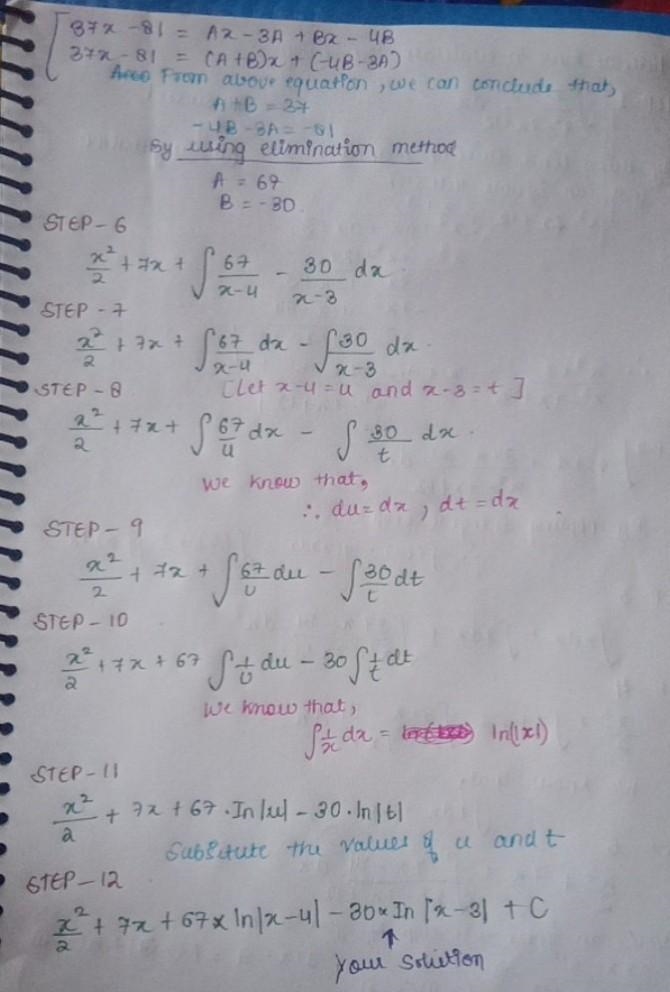 37x - 81 = Ax - 3A + Bx - 4B
37x - 81 = (A+B)x + (-4B-3A)
From above equation, we can conclude that,
A+B = 37
-4B-3A = -81
By using elimination method
A = 67
B = -30
STEP-6
x²/2 + 7x + ∫ 67/x-4 - 30/x-3 dx
STEP-7
x²/2 + 7x + ∫ 67/x-4 dx - ∫ 30/x-3 dx.
[Let x-4 = u and x-3 = t]
STEP-8
x²/2 + 7x + ∫ 67/u dx - ∫ 30/t dx.
We know that,
∴ du = dx, dt = dx
STEP-9
x²/2 + 7x + ∫ 67/u du - ∫ 30/t dt
STEP-10
x²/2 + 7x + 67 ∫ 1/u du - 30 ∫ 1/t dt
We know that,
∫ 1/x dx = ln(|x|)
STEP-11
x²/2 + 7x + 67 · In |u| - 30 · ln |t|
Subsitute the values of u and t
STEP-12
x²/2 + 7x + 67 x ln |x-4| - 30 x In |x-3| + C
↑
your solution